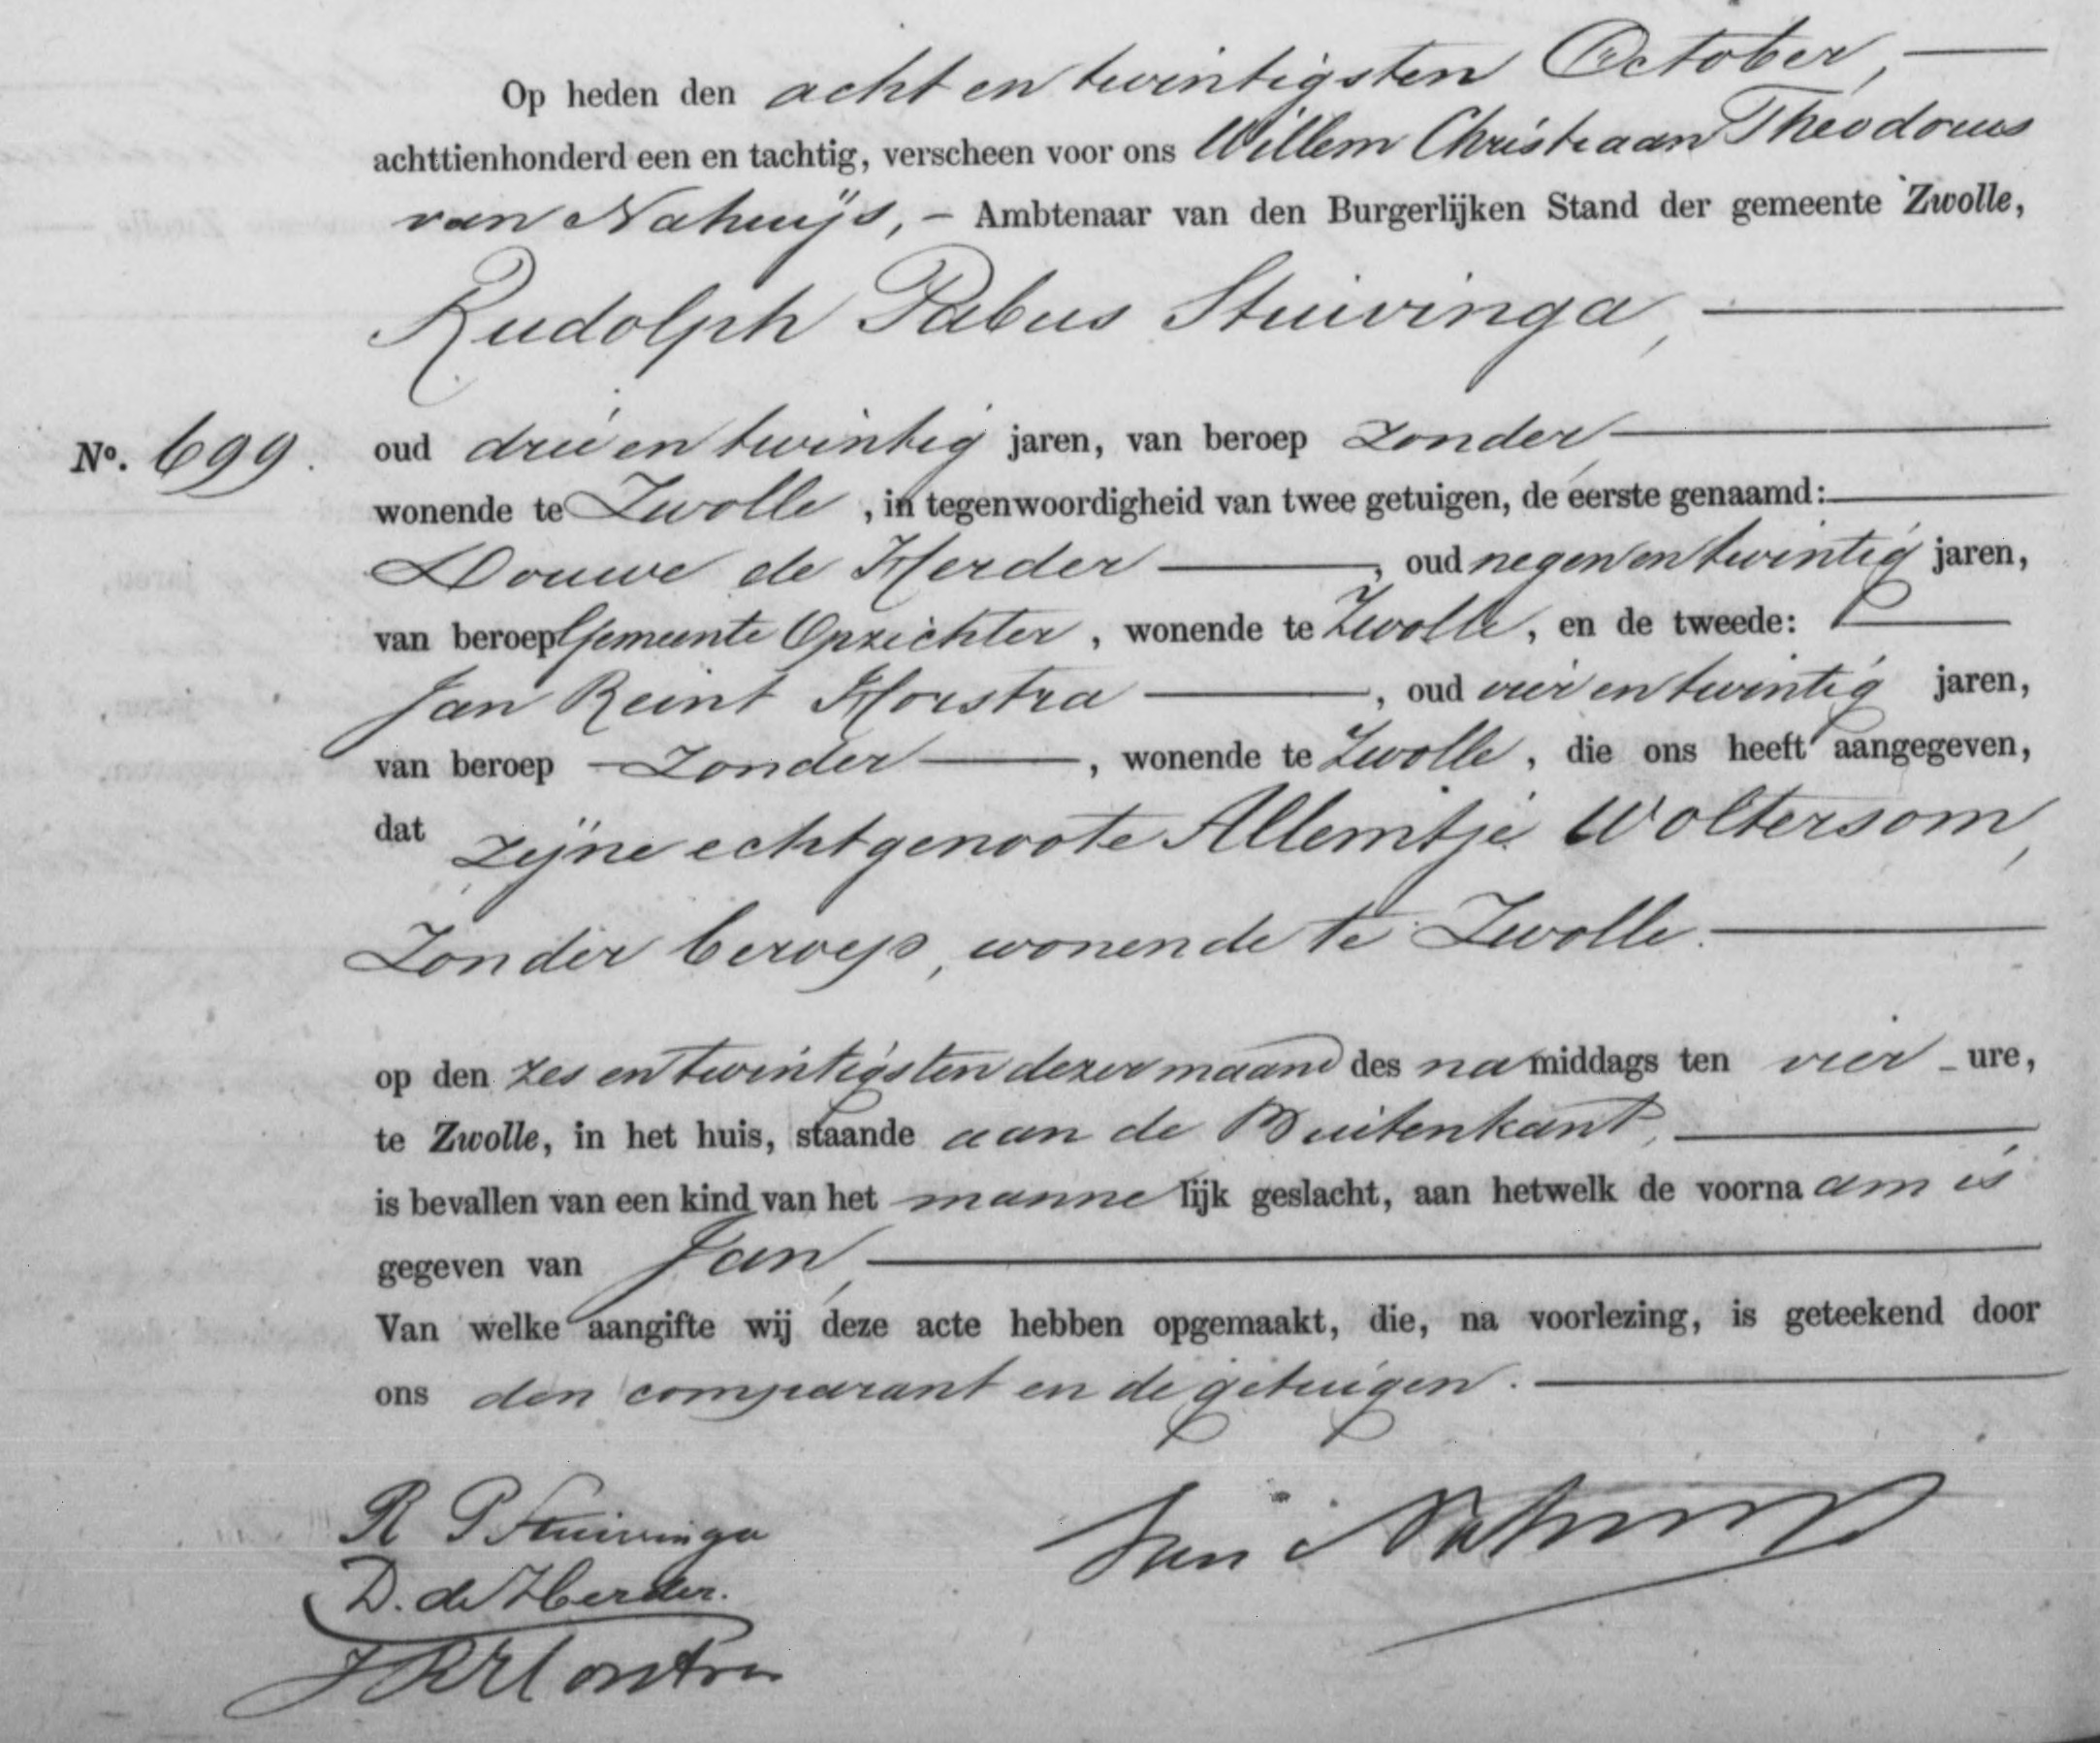 Op heden den acht en twintigsten October,
achttienhonderd een en tachtig, verscheen voor ons Willem Christiaan Theodorus
van Nahuijs, – Ambtenaar van den Burgerlijken Stand der gemeente Zwolle,
Rudolph Pabus Stuivinga,
No. 699. oud drie en twintig jaren, van beroep zonder
wonende te Zwolle, in tegenwoordigheid van twee getuigen, de eerste genaamd:
Douwe de Herder, oud negen en twintig jaren,
van beroep Gemeente Opzichter, wonende te Zwolle, en de tweede:
Jan Reint Horstra, oud vier en twintig jaren,
van beroep – Zonder, wonende te Zwolle, die ons heeft aangegeven,
dat zijne echtgenoote Allemtje Woltersom,
Zonder beroep, wonende te Zwolle.
op den zes en twintigsten dezer maand des namiddags ten vier – ure,
te Zwolle, in het huis, staande aan de Buitenkant,
is bevallen van een kind van het mannelijk geslacht, aan hetwelk de voornaam is
gegeven van Jan,
Van welke aangifte wij deze acte hebben opgemaakt, die, na voorlezing, is geteekend door
ons den comparant en de getuigen.
R P Stuivinga
D. de Herder.
J R Horstra
Van Nahuijs